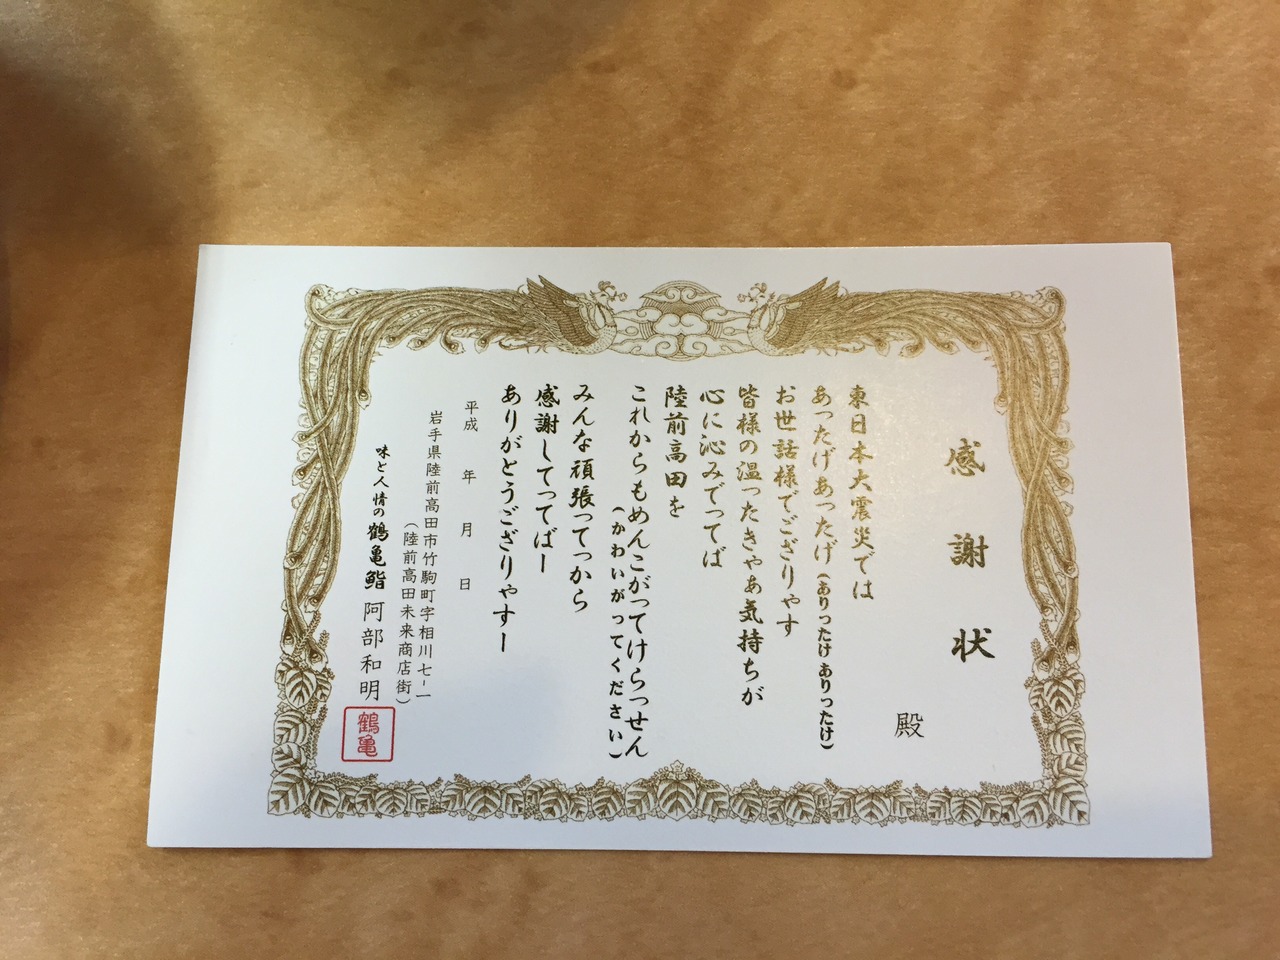 感謝状
殿
東日本大震災では
あったげあったげ(ありったけ ありったけ)
お世話様でござりゃす
皆様の温ったきゃぁ気持ちが
心に沁みでってば
陸前高田を
これからもめんこがってけらっせん
(かわいがってください)
みんな頑張ってっから
感謝してってばー
ありがとうござりゃすー
平成 年 月 日
岩手県陸前高田市竹駒町字相川七-一
(陸前高田未来商店街)
味と人情の鶴亀鮨 阿部和明
鶴亀